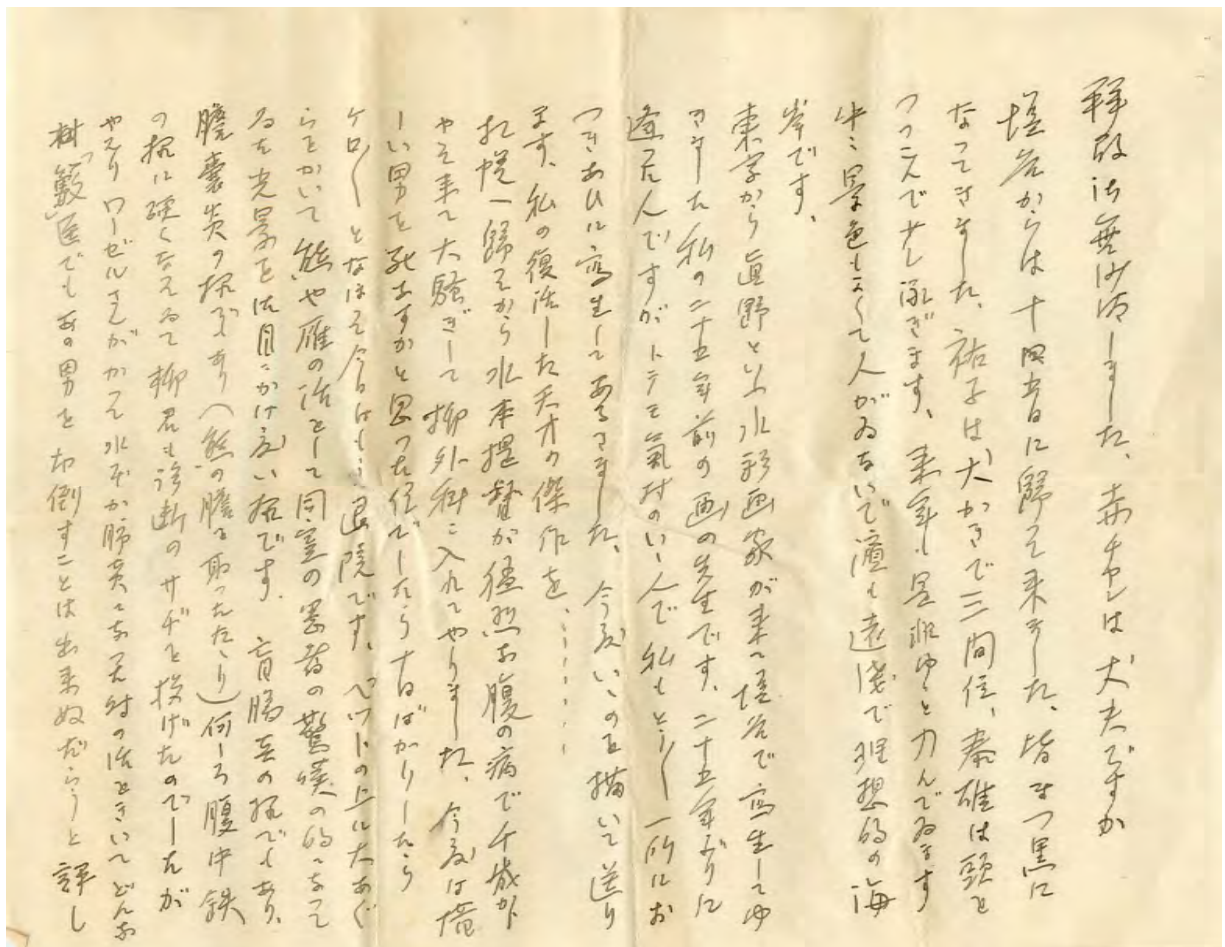 拝啓 御無沙汰しました、赤チャンは大丈夫ですか
塩谷からは十四五日に帰って来ました、皆まっ黒に
なってきました、祐子は犬かきで三間位、泰雄は頭を
つっこんで少し泳ぎます、来年も是非ゆくと力んでゐます
中々景色もよくて人がゐないで濱も遠浅で理想的の海
岸です、
東京から眞野といふ水彩画家が来て塩谷で寫生してゆ
きました私の二十五年前の画の先生です、二十五年ぶりに
逢った人ですがトテモ氣持のいゝ人で私もとう〱一所にお
つきあひに寫生してあるきました、今度いゝの互描いて送り
ます、私の復活した天才の傑作を、......
札幌へ歸ってから水本提督が猛烈な腹の病で千歳から
やって来て大騒ぎして柳外科に入れてやりました、今度は惜
しい男を死なすかと思った位でしたら十日ばかりしたら
ケロ〱となほって今日はもう退院です、ベットの上に大あぐ
らをかいて熊や雁の話をして同室の患者の驚嘆の的になって
ゐた光景を御目にかけ度い位です、盲腸炎の様でもあり、
膽嚢炎の様でもあり(熊の膽を取ったたゝり)何しろ腹中鉄
の様に硬くなってゐて柳君も診断のサヂを投げたのでしたが
やはりワーゼルさんがかって水本が肺炎になった時の話をきいてどんな
樹「籔」医でもあの男を切倒すことは出来ぬだらうと評し